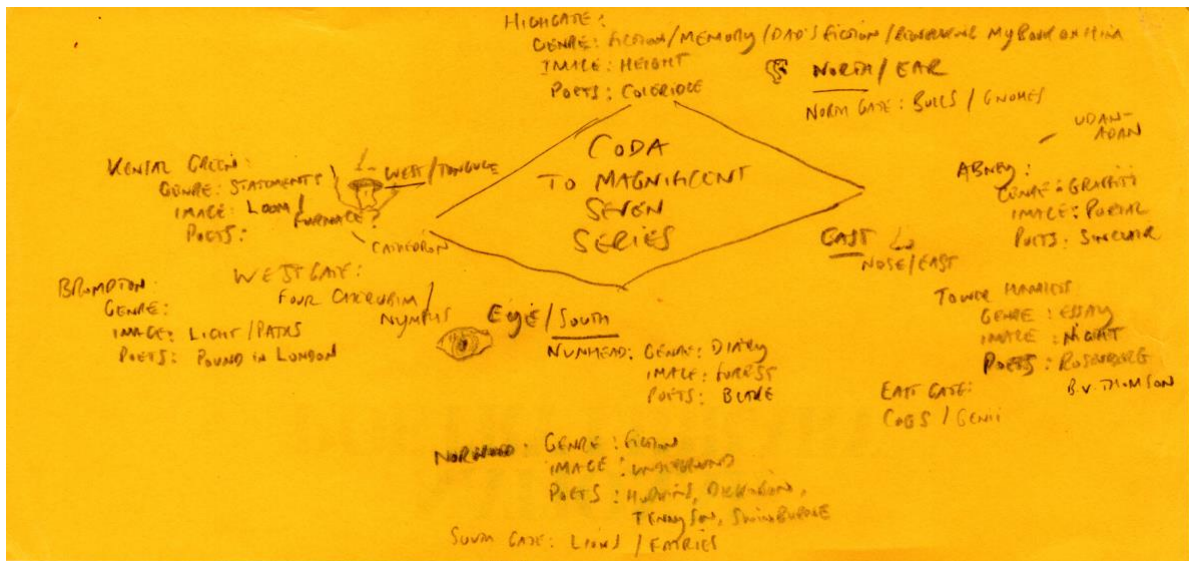 HIGHGATE:
GENRE: FICTION/MEMORY/DAD'S FICTION/ MY
IMAGE: HEIGHT
POETS: COLERIDGE
NORTH/EAR
NORTH GATE: BULLS/GNOMES
UDAN-
ADAN
ABNEY:
GENRE: GRAFFITI
IMAGE: PORTAL
POETS: SINCLAIR
KENSAL GREEN:
GENRE: STATEMENTS
IMAGE: LOOM/
FURNACE?
POETS:
WEST/TONGUE
CATHEDRON
CODA
TO MAGNIFICENT
SEVEN
SERIES
EAST
NOSE/EAST
WEST GATE:
FOUR CHERUBIM/
NYMPHS
BROMPTON:
GENRE:
IMAGE: LIGHT/PATHS
POETS: POUND IN LONDON
EYE/SOUTH
NUNHEAD: GENRE: DIARY
IMAGE: FOREST
POETS: BLAKE
TOWER HAMLETS:
GENRE: ESSAY
IMAGE: NIGHT
POETS: ROSENBERG
B.V. THOMSON
EAST GATE:
COGS/GENII
NORWOOD: GENRE: FICTION
IMAGE: UNDERGROUND
POETS: HOPKINS, DICKINSON,
TENNYSON, SWINBURNE
SOUTH GATE: LIONS/FAIRIES